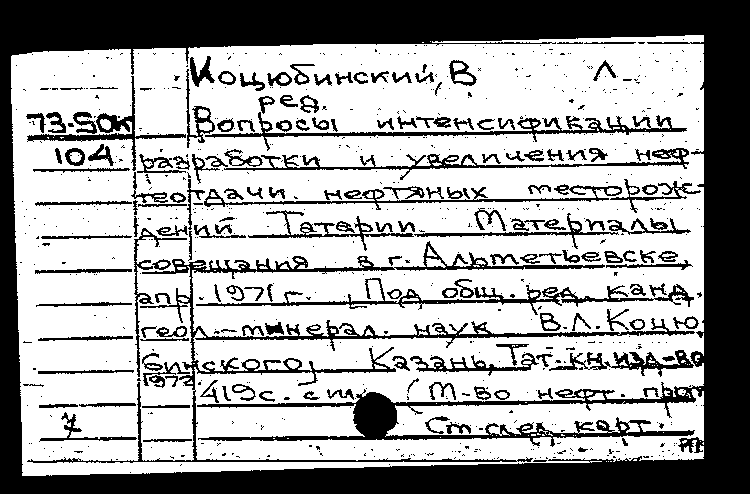 Коцюбинский, В Л
ред.
73-50к Вопросы интенсификации
104 разработки и увеличения неф-
теотдачи нефтяных месторож-
дений Татарии. Материалы
совещания в г. Альметьевске,
апр. 1971 г. [Под общ. ред. канд.
геол.-минерал. наук В.Л. Коцю
бинского] Казань, Тат. кн. изд-во
1972
419 с. с ил. (М-во нефт. пром
Ст. след. карт.